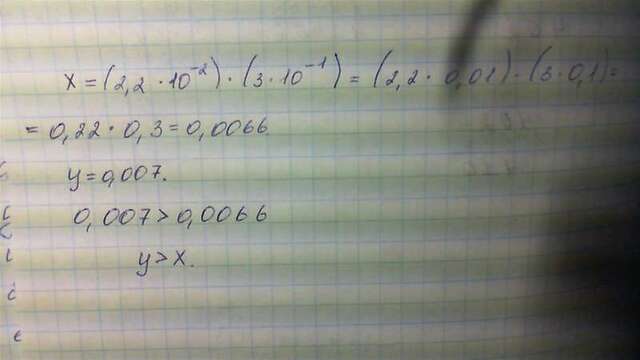 x = (2,2 · 10⁻²) · (3 · 10⁻¹) = (2,2 · 0,01) · (3 · 0,1) =
= 0,22 · 0,3 = 0,0066
y = 0,007.
0,007 > 0,0066
y > x.